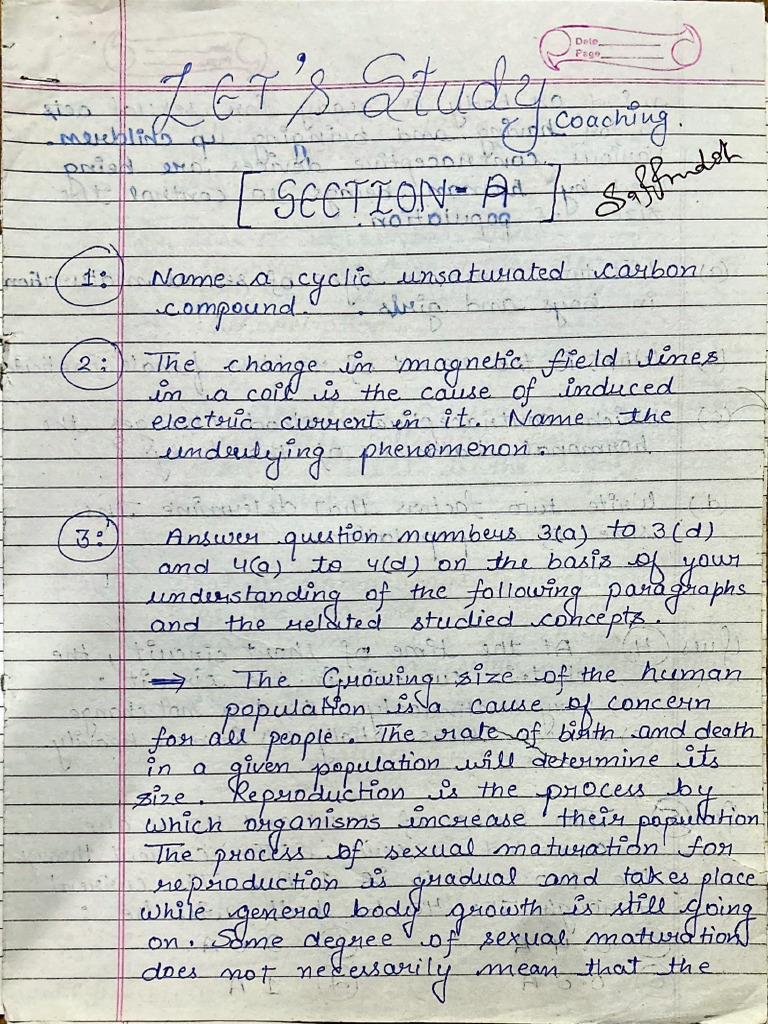 Date
Page
LET'S Study
Coaching.
[SECTION-A]
1: Name a cyclic unsaturated carbon
compound.
2: The change in magnetic field lines
in a coil is the cause of induced
electric current in it. Name the
underlying phenomenon.
3: Answer question numbers 3(a) to 3(d)
and 4(a) to 4(d) on the basis of your
understanding of the following paragraphs
and the related studied concepts.
→ The Growing size of the human
population is a cause of concern
for all people. The rate of birth and death
in a given population will determine its
size. Reproduction is the process by
which organisms increase their population
The process of sexual maturation for
reproduction is gradual and takes place
while general body growth is still going
on. Some degree of sexual maturation
does not necessarily mean that the